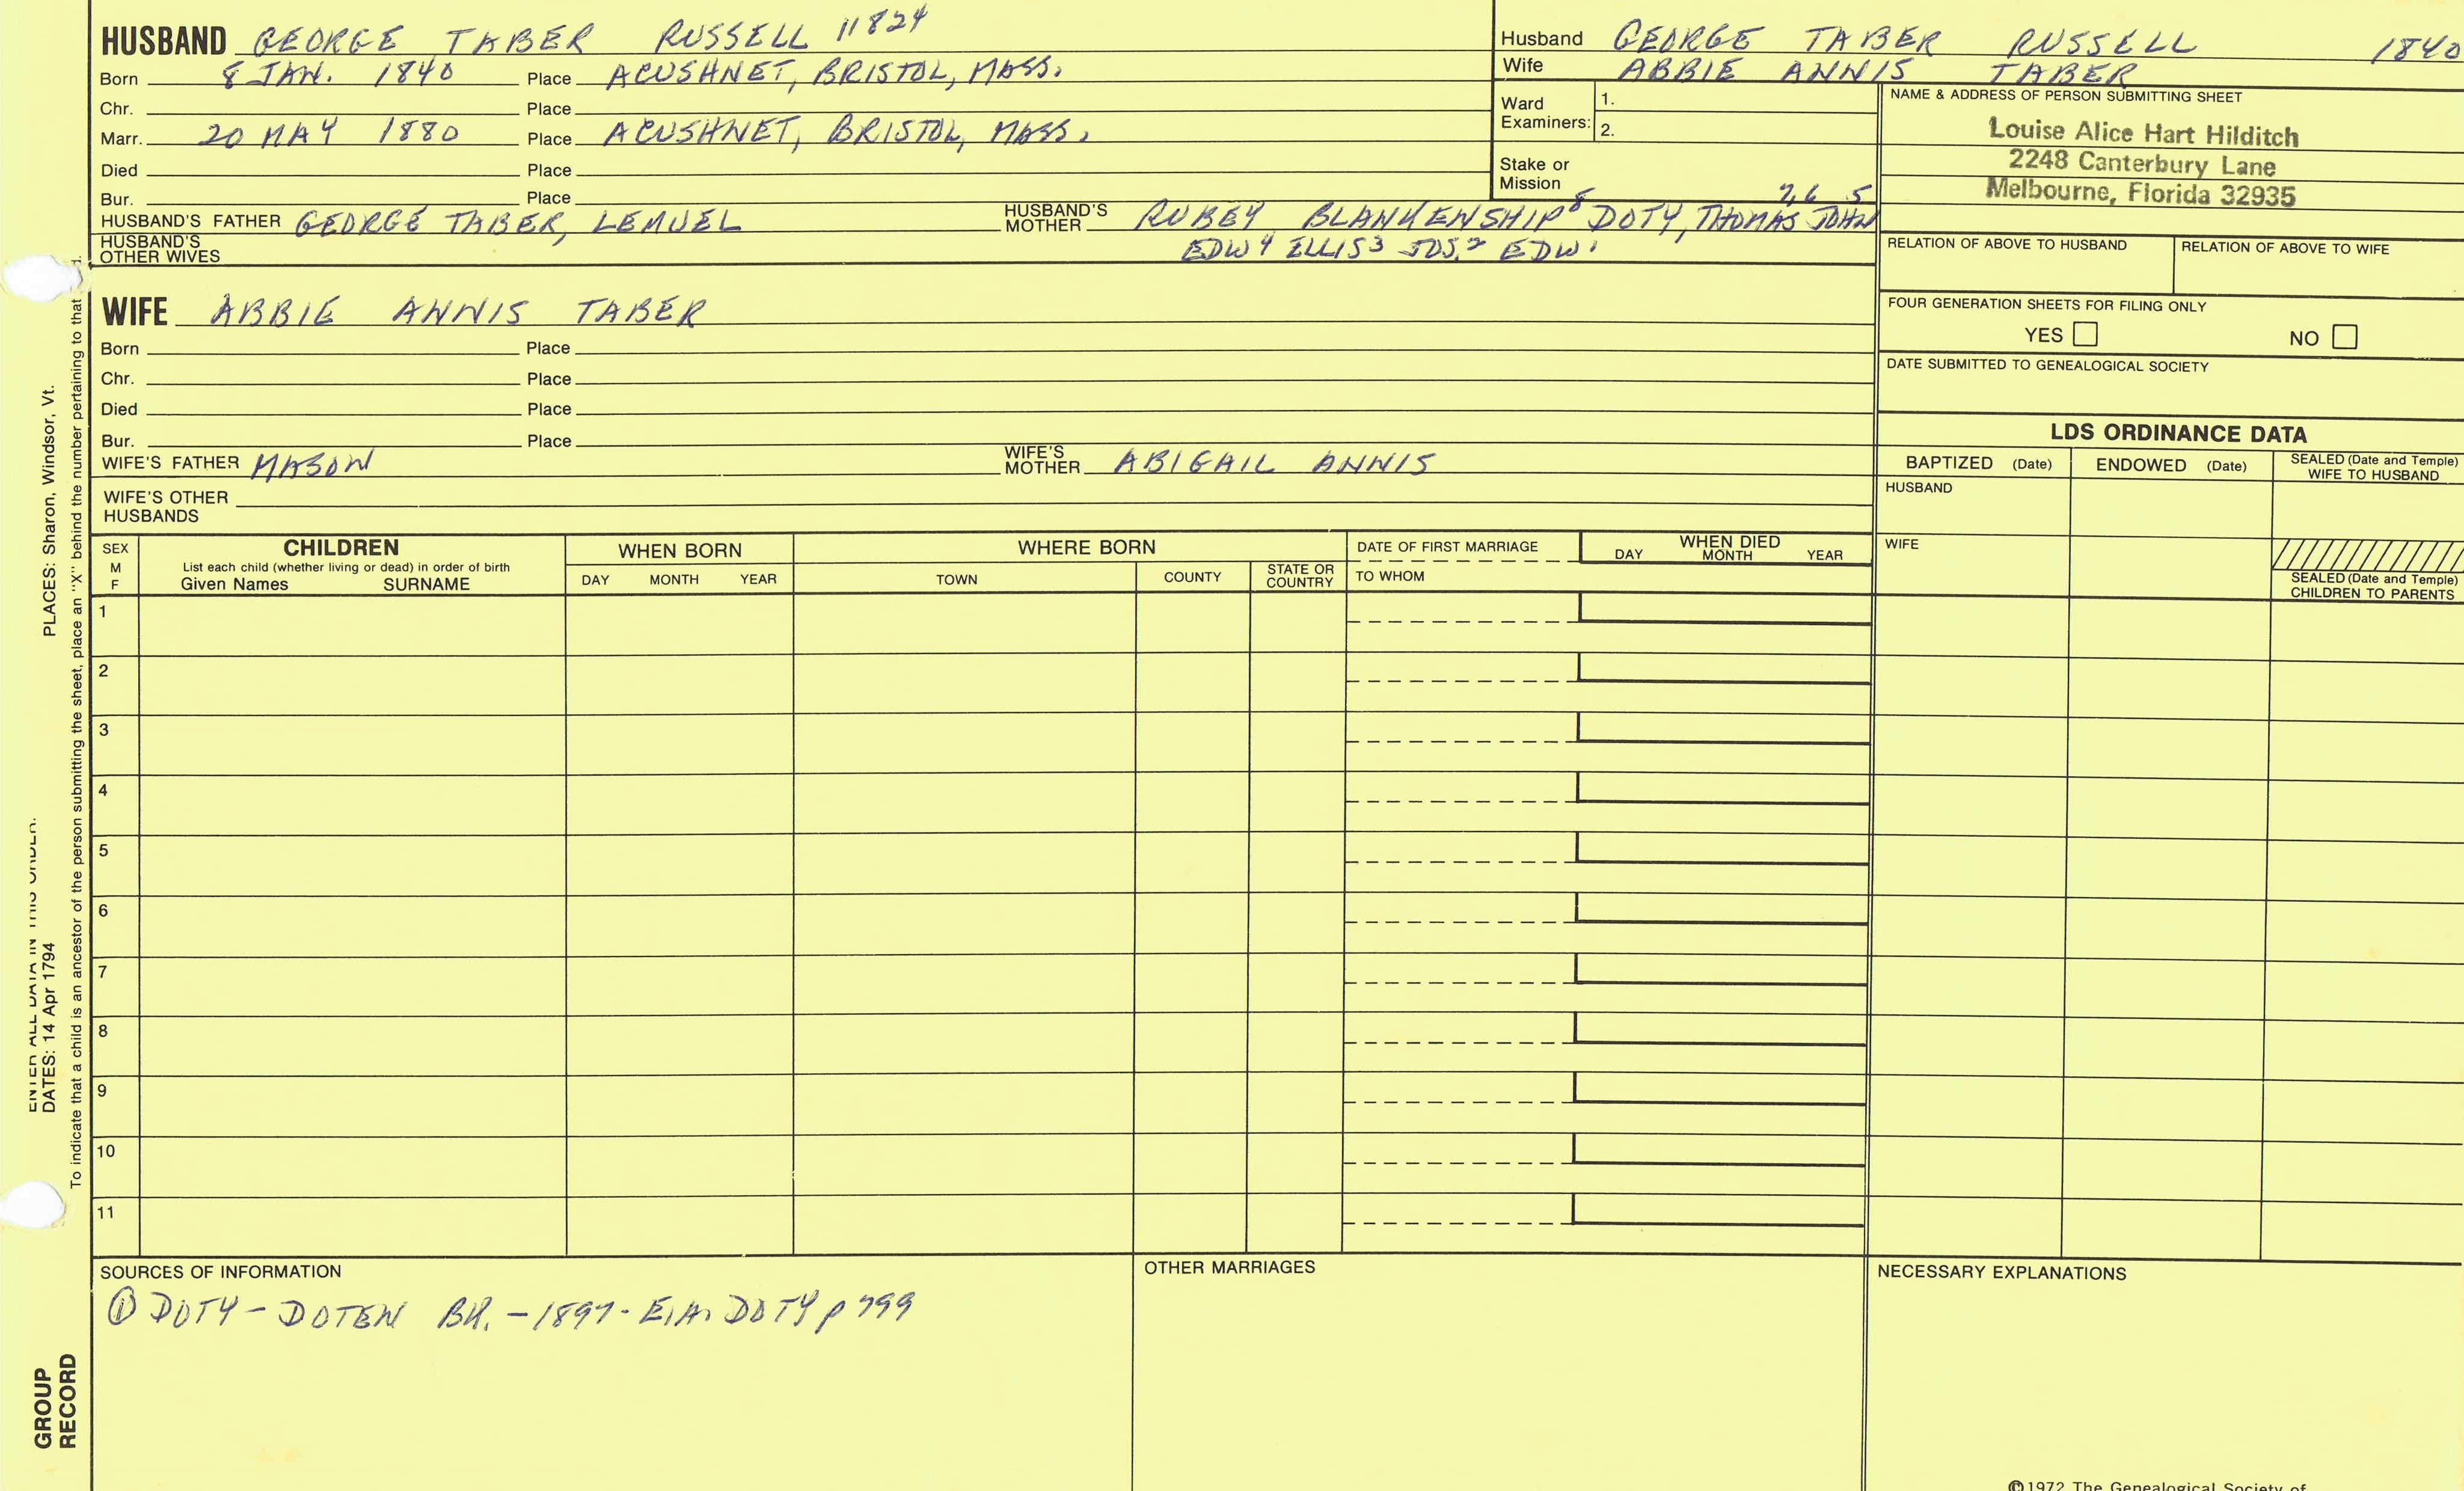 HUSBAND GEORGE TABER RUSSELL 11824
Born 8 JAN. 1840 Place ACUSHNET, BRISTOL, MASS.
Chr. Place
Marr. 20 MAY 1880 Place ACUSHNET, BRISTOL, MASS.
Died Place
Bur. Place
HUSBAND'S FATHER GEORGE TABER, LEMUEL HUSBAND'S MOTHER RUBEY BLANKENSHIP 8 DOTY, THOMAS 7, 6 JOHN 5
HUSBAND'S OTHER WIVES EDW 4 ELLIS 3 JOS. 2 EDW. 1
Husband GEORGE TABER RUSSELL 1840
Wife ABBIE ANNIS TABER
Ward Examiners: 1.
2.
Stake or Mission
NAME & ADDRESS OF PERSON SUBMITTING SHEET
Louise Alice Hart Hilditch
2248 Canterbury Lane
Melbourne, Florida 32935
RELATION OF ABOVE TO HUSBAND RELATION OF ABOVE TO WIFE
FOUR GENERATION SHEETS FOR FILING ONLY
YES NO
DATE SUBMITTED TO GENEALOGICAL SOCIETY
WIFE ABBIE ANNIS TABER
Born Place
Chr. Place
Died Place
Bur. Place
WIFE'S FATHER MASON WIFE'S MOTHER ABIGAIL ANNIS
WIFE'S OTHER HUSBANDS
LDS ORDINANCE DATA
BAPTIZED (Date) ENDOWED (Date) SEALED (Date and Temple) WIFE TO HUSBAND
HUSBAND
WIFE
SEALED (Date and Temple) CHILDREN TO PARENTS
SEX M F
CHILDREN
List each child (whether living or dead) in order of birth
Given Names SURNAME
WHEN BORN
DAY MONTH YEAR
WHERE BORN
TOWN COUNTY STATE OR COUNTRY
DATE OF FIRST MARRIAGE
TO WHOM
WHEN DIED
DAY MONTH YEAR
1
2
3
4
5
6
7
8
9
10
11
SOURCES OF INFORMATION
① DOTY - DOTEN BK. - 1897 - E.A. DOTY p 799
OTHER MARRIAGES
NECESSARY EXPLANATIONS
©1972 The Genealogical Society of
ENTER ALL DATA IN THIS ORDER:
DATES: 14 Apr 1794 PLACES: Sharon, Windsor, Vt.
To indicate that a child is an ancestor of the person submitting the sheet, place an "X" behind the number pertaining to that d.
GROUP
RECORD